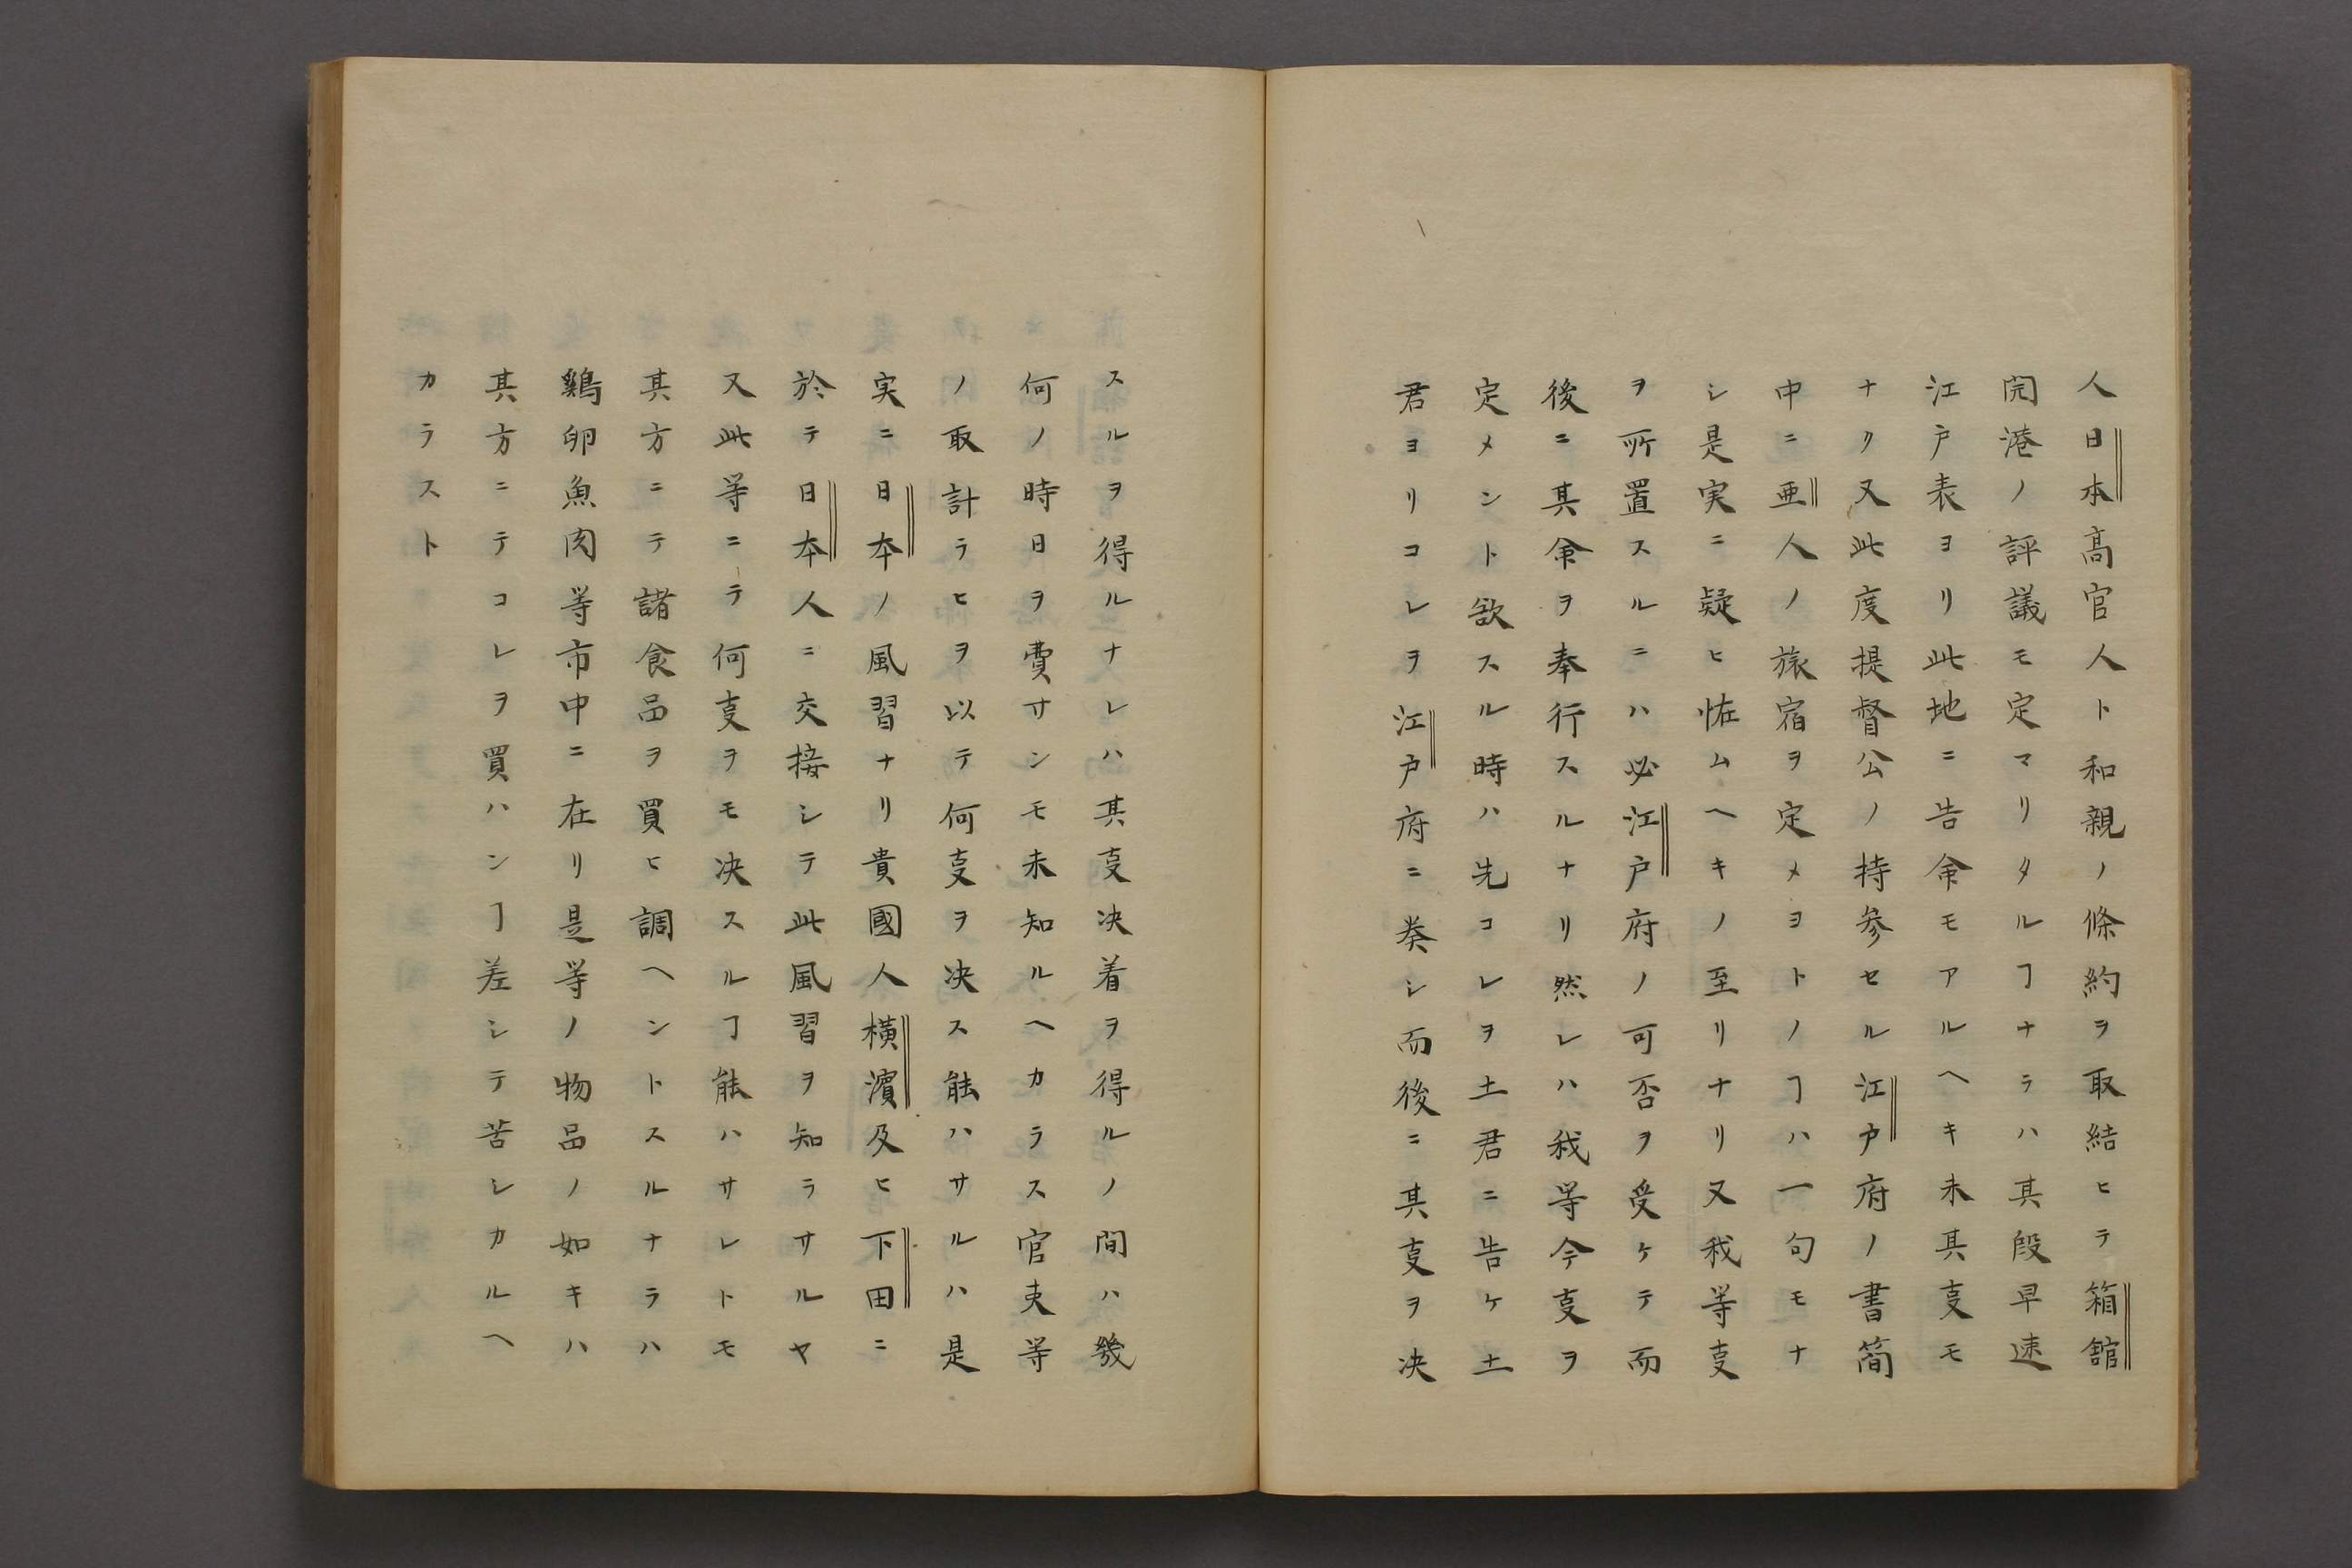 人日本高官人ト和親ノ條約ヲ取結ヒテ箱舘
開港ノ評議モ定マリタルヿナラハ其段早速
江戸表ヨリ此地ニ告命モアルヘキ未其𫝆モ
ナク又此度提督公ノ持参セル江戸府ノ書簡
中ニ亜人ノ旅宿ヲ定メヨトノヿハ一句モナ
シ是実ニ疑ヒ恠ムヘキノ至リナリ又我等𫝆
ヲ所置スルニハ必江戸府ノ可否ヲ受ケテ而
後ニ其命ヲ奉行スルナリ然レハ我等今𫝆ヲ
定メント欲スル時ハ先コレヲ土君ニ告ケ土
君ヨリコレヲ江戸府ニ発シ而後ニ其𫝆ヲ决
スルヲ得ルナレハ其𫝆决着ヲ得ルノ間ハ幾
何ノ時日ヲ費サンモ未知ルヘカラス官吏等
ノ取計ラヒヲ以テ何𫝆ヲ决ス能ハサルハ是
実ニ日本ノ風習ナリ貴國人横濱及ヒ下田ニ
於テ日本人ニ交接シテ此風習ヲ知ラサルヤ
又此等ニテ何𫝆ヲモ决スルヿ能ハサレトモ
其方ニテ諸食品ヲ買ヒ調ヘントスルナラハ
鷄卵魚肉等市中ニ在リ是等ノ物品ノ如キハ
其方ニテコレヲ買ハンヿ差シテ苦シカルヘ
カラスト